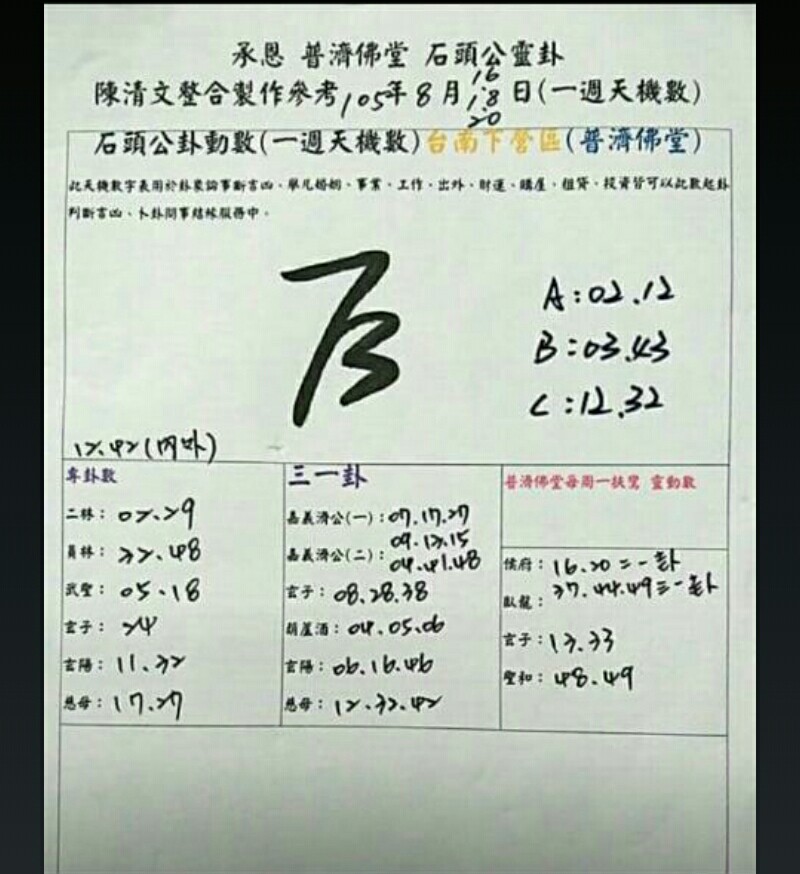 承恩 普濟佛堂 石頭公靈卦
陳清文整合製作參考105年8月16.18.20日(一週天機數)
石頭公卦動數(一週天機數)台南下營區(普濟佛堂)
此天機數字表用於卦象論事斷吉凶、舉凡婚姻、事業、工作、出外、財運、購屋、租貸、投資皆可以此數起卦
判斷吉凶、卜卦問事結緣服務中。
A:02.12
B:03.43
C:12.32
12.42(內外)
專卦數
二林:02.29
員林:32.48
武聖:05.18
玄子:24
玄陽:11.32
慈母:17.27
三一卦
嘉義濟公(一):07.17.27
嘉義濟公(二):09.13.15
04.41.48
玄子:08.28.38
葫蘆酒:04.05.06
玄陽:06.16.46
慈母:12.32.42
普濟佛堂每周一扶鸞 靈動數
侯府:16.20=一卦
臥龍:37.44.49=一卦
玄子:13.33
聖和:48.49